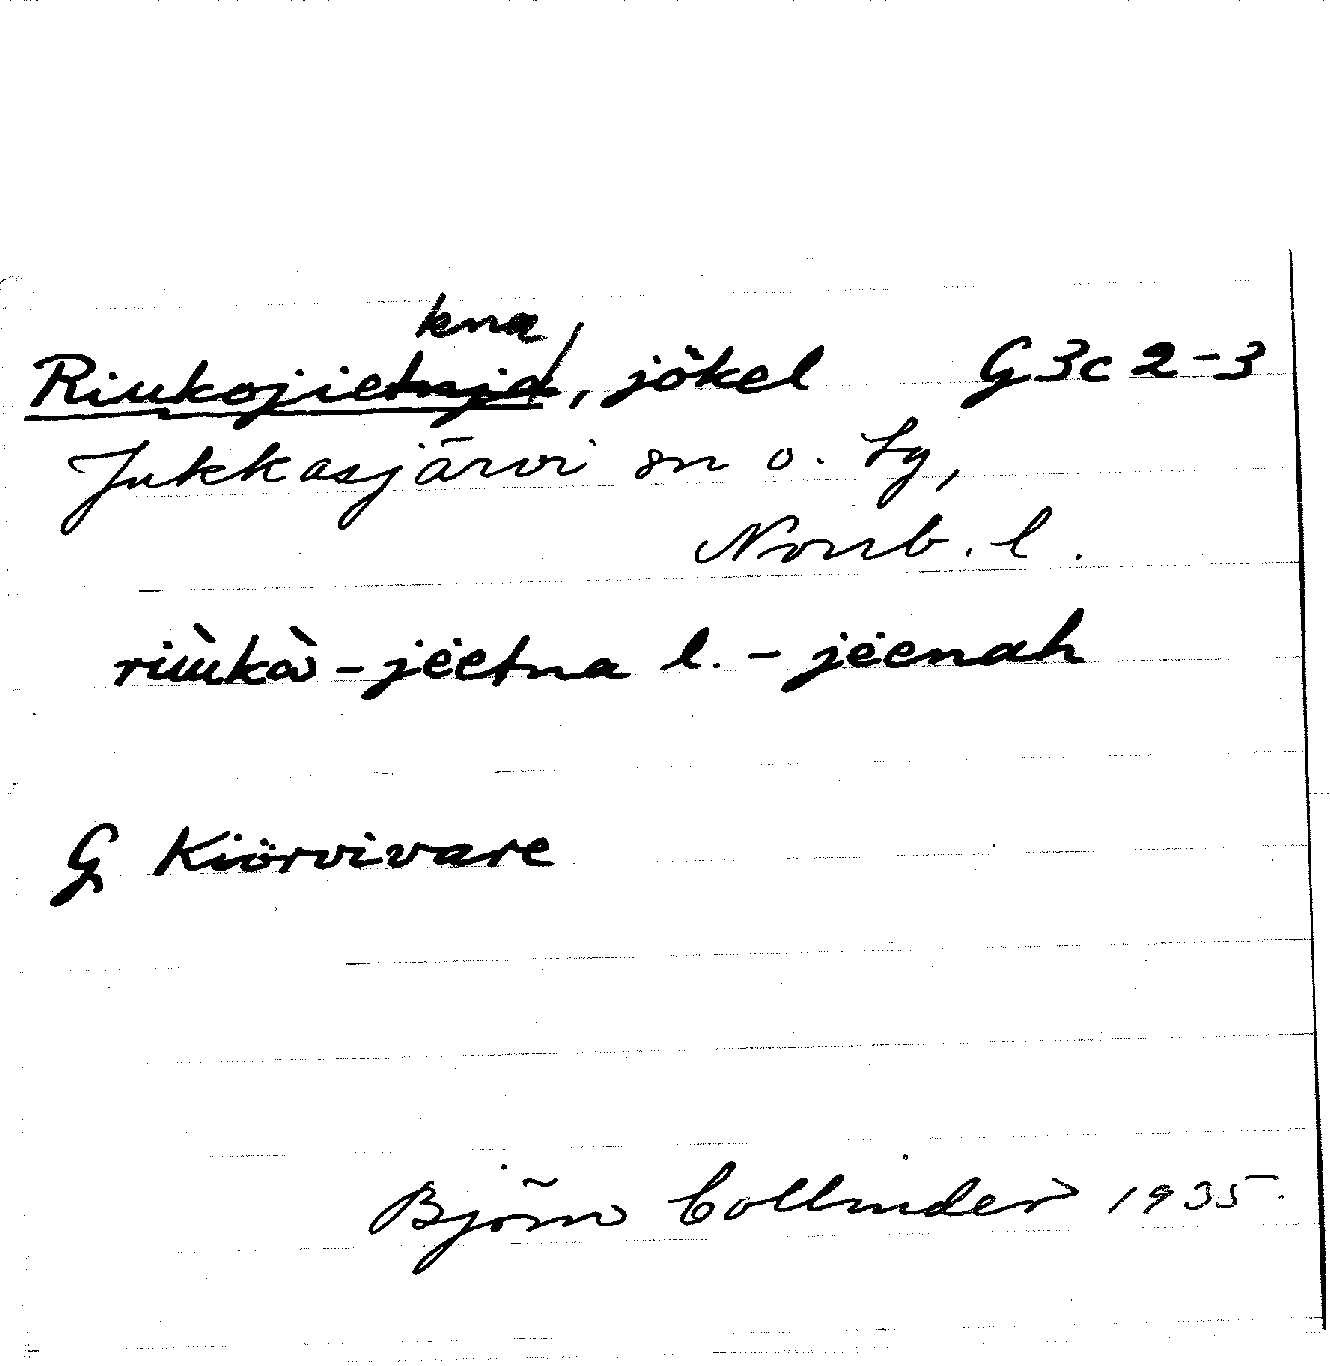 kna
Riukojietnja, jökel G 3c 2-3
Jukkasjärvi sn o. tg,
Norrb. l.
riùkà - jëëtna l. - jëënah
G Kiörvivare
Björn Collinder 1935.